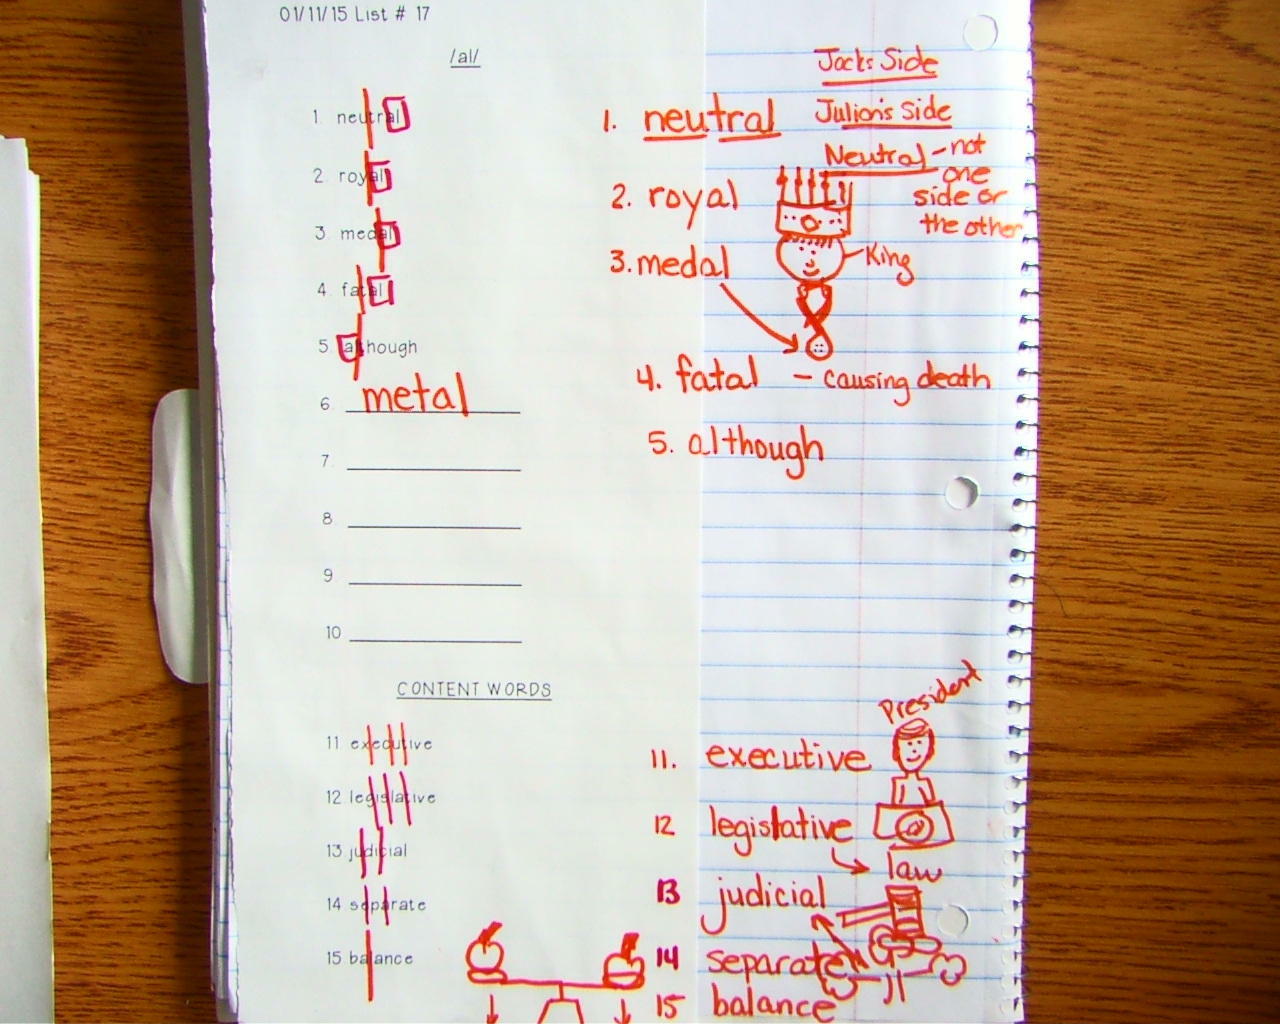 01/11/15 List # 17
/al/
1. neutral
2. royal
3. medal
4. fatal
5. although
6. metal
7.
8.
9.
10.
CONTENT WORDS
11. executive
12. legislative
13. judicial
14. separate
15. balance
Jacks Side
Julian's Side
1. neutral
Neutral - not
one
side or
the other
2. royal
King
3. medal
4. fatal - causing death
5. although
President
11. executive
12 legislative
law
13 judicial
14 separate
15 balance